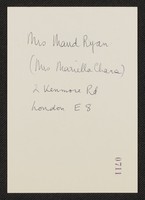 Mrs Maud Ryan
(Mrs Mariella Chave)
2 Kenmore Rd
London E 8
0711